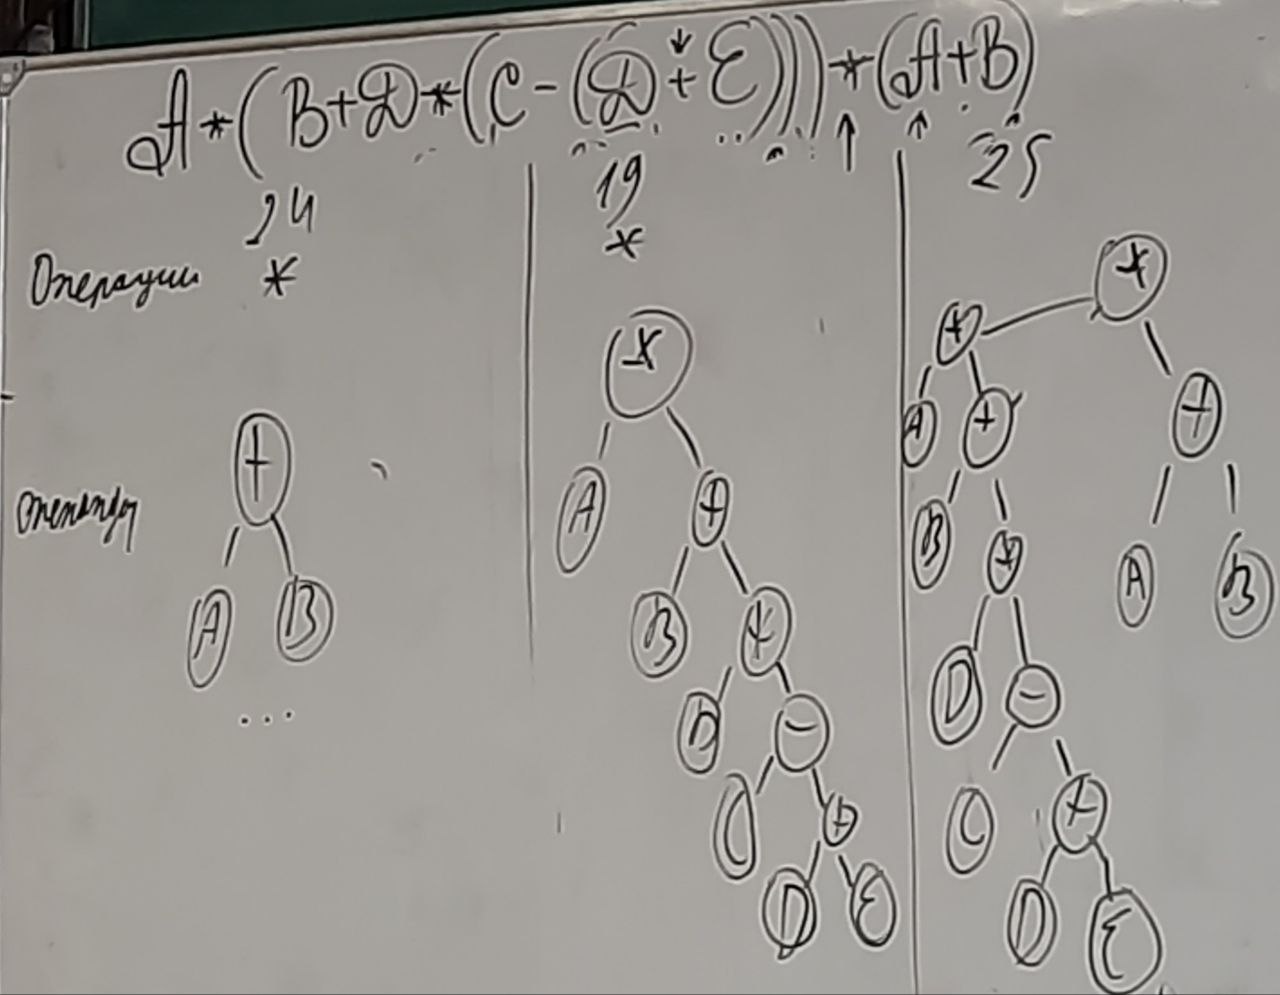 A*(B+D*(C-(D+E)))*(A+B)
24
19
25
Операции
*
*
операнды
+
A
B
...
*
A
+
B
*
D
-
C
+
D
E
*
*
+
A
+
A
B
B
*
D
-
C
+
D
E